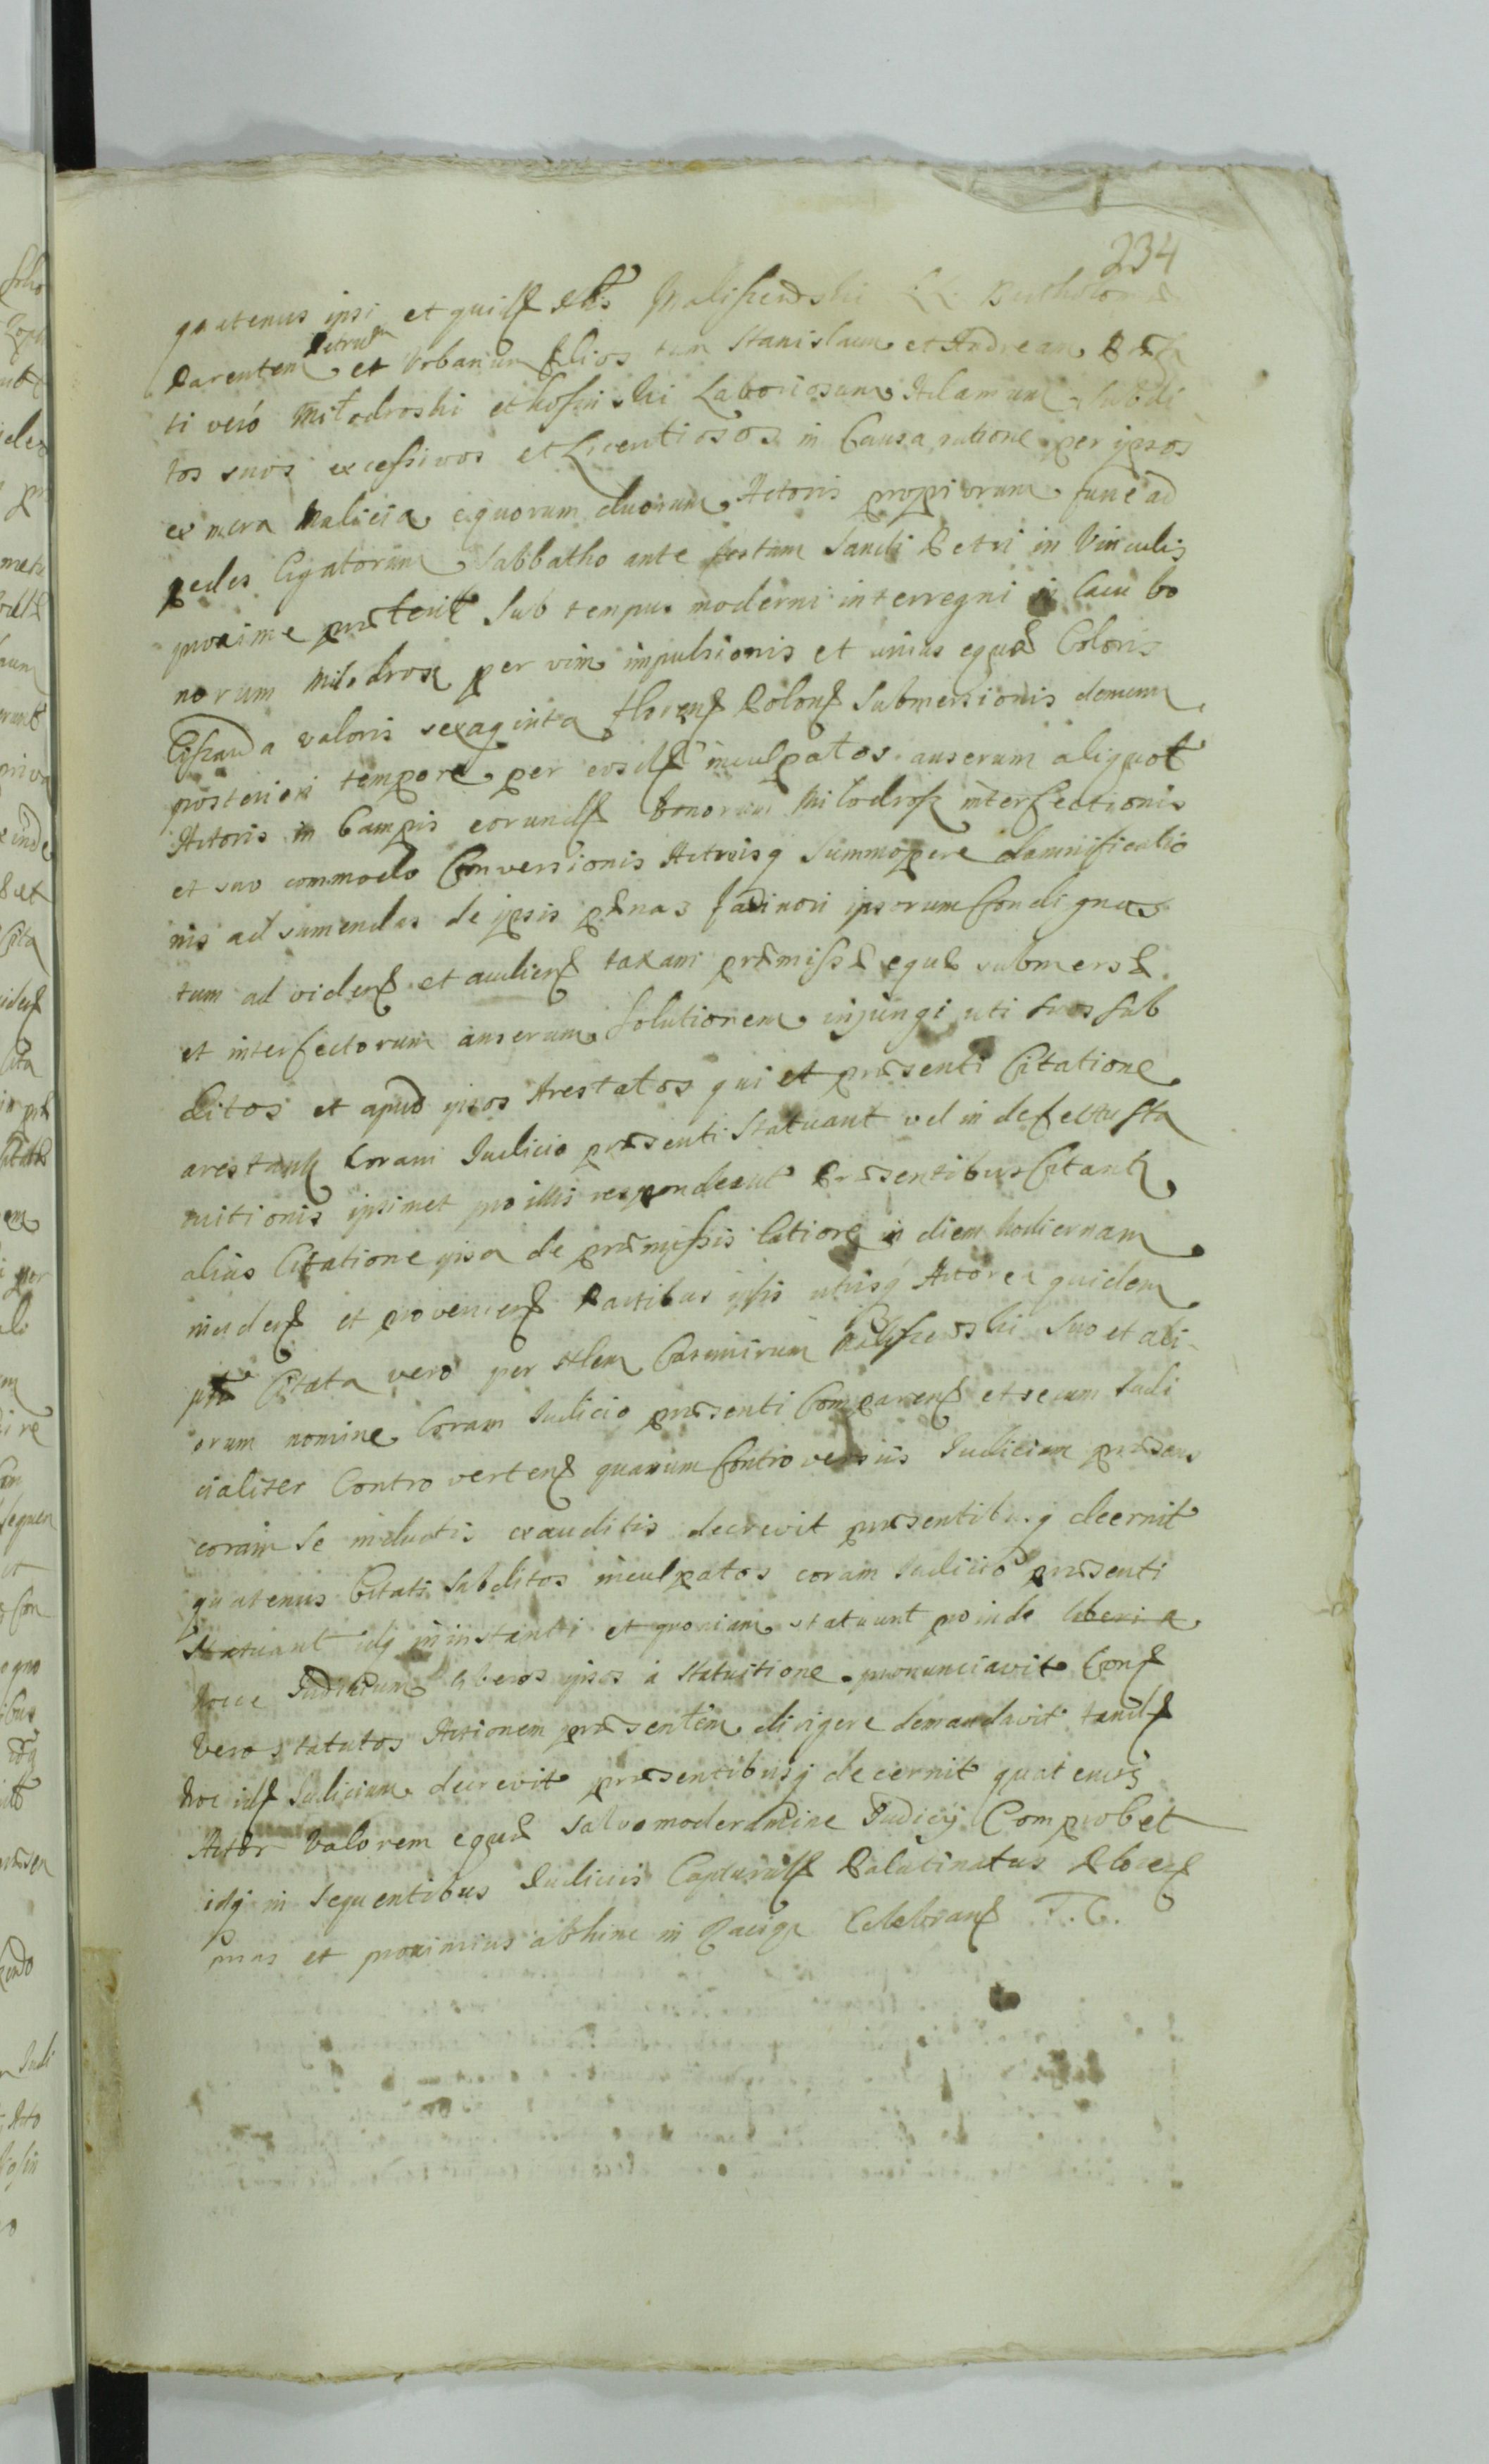 234
quatenus ipsi et quilꝭ Nblis Maliszewski LL. Bartholom
Parentem Petrum et Urbanum filios tum Stanislaum et Andream
ti verò Miłodroski et Laboriosum Adamum subdi
tos suos excessivos et Licentiosos in Causa ratione per ipsos
ex mera Malicia equorum duorum Actoris propriorum fune ad
pedes ligatorum Sabbatho ante festum Sancti Petri in Vinculis
proxime præterit Sub tempus moderni interregni in lacu bo
norum Milodroz per vim impulsionis et unius equæ Coloris
valoris sexaginta floren Polon Submersionis demum
posteriori tempore per eosdꝭ inculpatos anserum aliquot
Actoris in Campis eorundꝭ bonorum Milodroz interfectionis
et suo commodo Conversionis Actorisq summopere damnificatio
nis ad sumendas de ipsis pænas facinori ipsorum Condignas
tum ad videnꝭ et audienꝭ taxam præmissæ equæ submersæ
et interfectorum anserum Solutionem injungi uti suos sub
ditos et apud ipsos Arestatos qui et præsenti Citatione
arestantꝭ Coram Judicio præsenti Statuant vel in defectu sta
tuitionis ipsimet pro illis respondeant Præsentibus Citantꝭ
alias Citatione ipsa de præmissis latiore in diem hodiernam
incidenꝭ et provenienꝭ Partibus ipsis utrisq Actorea quidem
Citata vero per Nblem Casimirum Maliszewski suo et ali
orum nomine Coram Judicio præsenti Comparenꝭ et secum Judi
cialiter Controvertenꝭ quarum Controversiis Judicium præsens
coram se inductis exauditis decrevit præsentibusq decernit
quatenus Citati subditos inculpatos coram Judicio præsenti
Statuant idq in instanti et quoniam statuunt proinde liberi a
hocce Judicium liberos ipsos à Statuitione pronunciavit
vero statutos Actionem præsentem dirigere demandavit tandꝭ
hoc idꝭ Judicium decrevit præsentibusq decernit quatenus
Actor Valorem equæ salvo moderamine Judicij Comprobet
idq in sequentibus Judiciis Capturalꝭ Palatinatus Plocenꝭ
primis et proximius abhinc in Raciąz Celebranꝭ T. T.